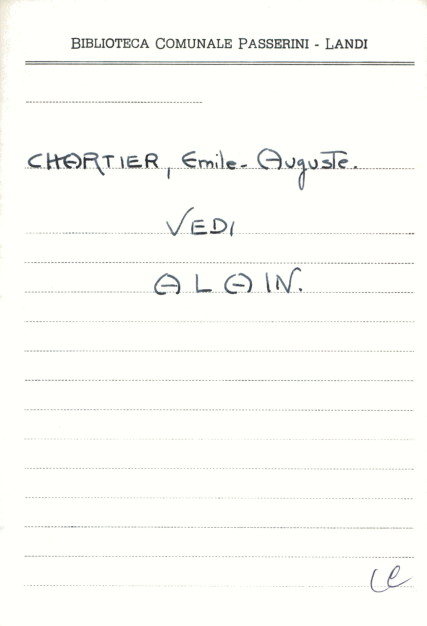 BIBLIOTECA COMUNALE PASSERINI - LANDI
CHARTIER, Emile-Auguste.
VEDI
ALAIN.